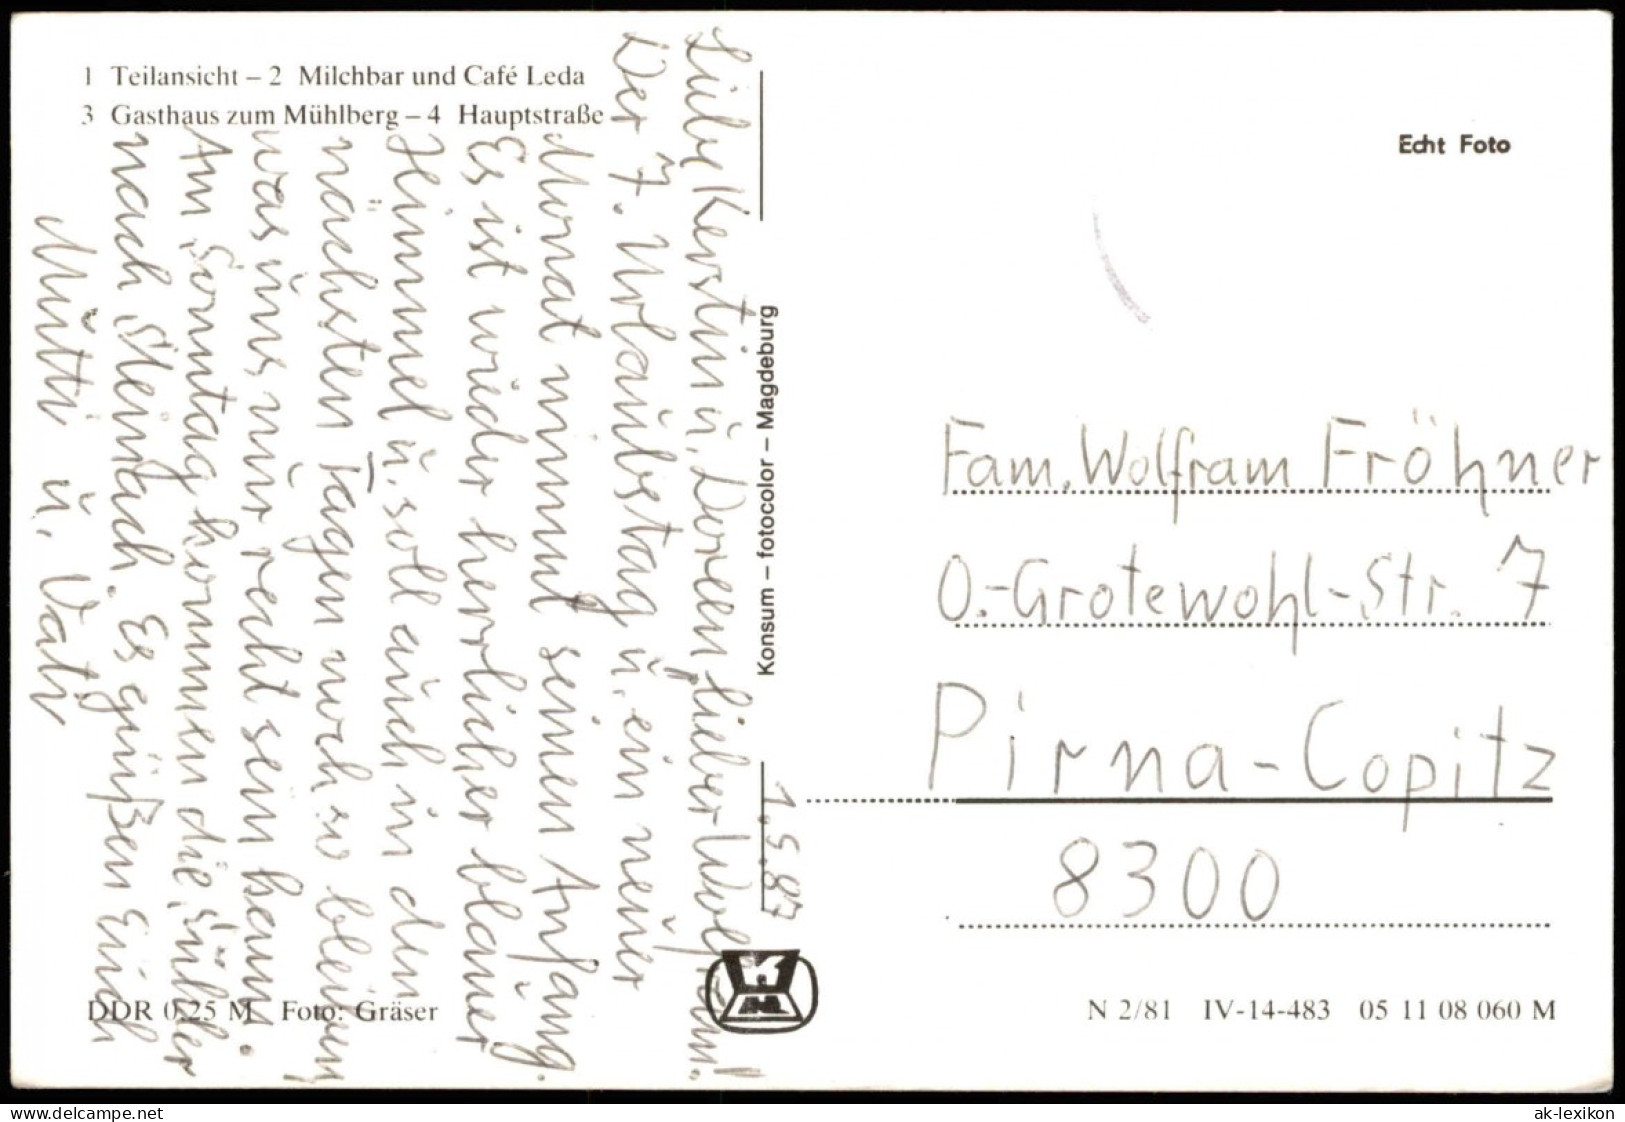 1 Teilansicht – 2 Milchbar und Café Leda
3 Gasthaus zum Mühlberg – 4 Hauptstraße
1.5.87
Liebe Kerstin u. Doreen, lieber Wolfram!
Der 7. Urlaubstag u. ein neuer
Monat nimmt seinen Anfang.
Es ist wieder herrlicher blauer
Himmel u. soll auch in den
nächsten Tagen noch so bleiben
was uns nur recht sein kann.
Am Sonntag kommen die
nach Steinach. Es grüßen Euch
Mutti u. Vati
Konsum – fotocolor – Magdeburg
Echt Foto
Fam. Wolfram Fröhner
O.-Grotewohl-Str. 7
Pirna-Copitz
8300
DDR 0.25 M Foto: Gräser
N 2/81 IV-14-483 05 11 08 060 M
ak-lexikon.com